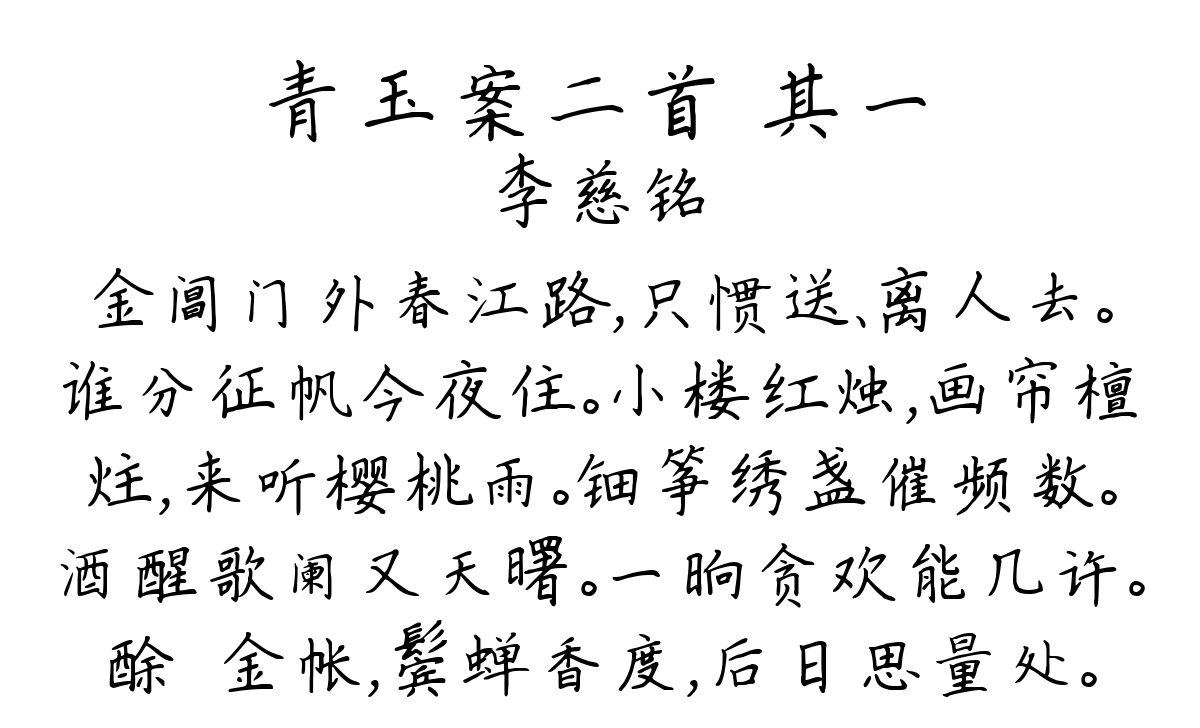 青玉案二首 其一
李慈铭
金阊门外春江路,只惯送、离人去。
谁分征帆今夜住。小楼红烛,画帘檀
炷,来听樱桃雨。钿筝绣盏催频数。
酒醒歌阑又天曙。一晌贪欢能几许。
酴 金帐,鬓蝉香度,后日思量处。